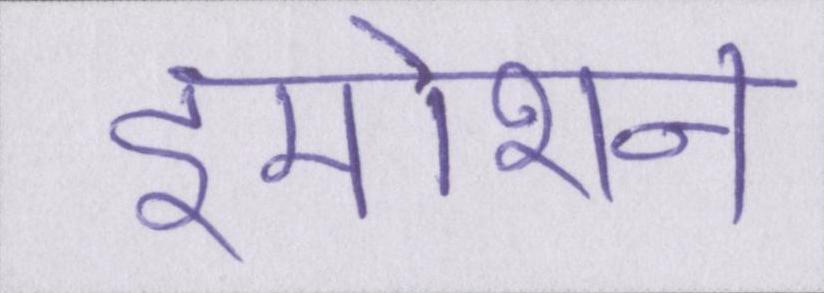 इमोशन